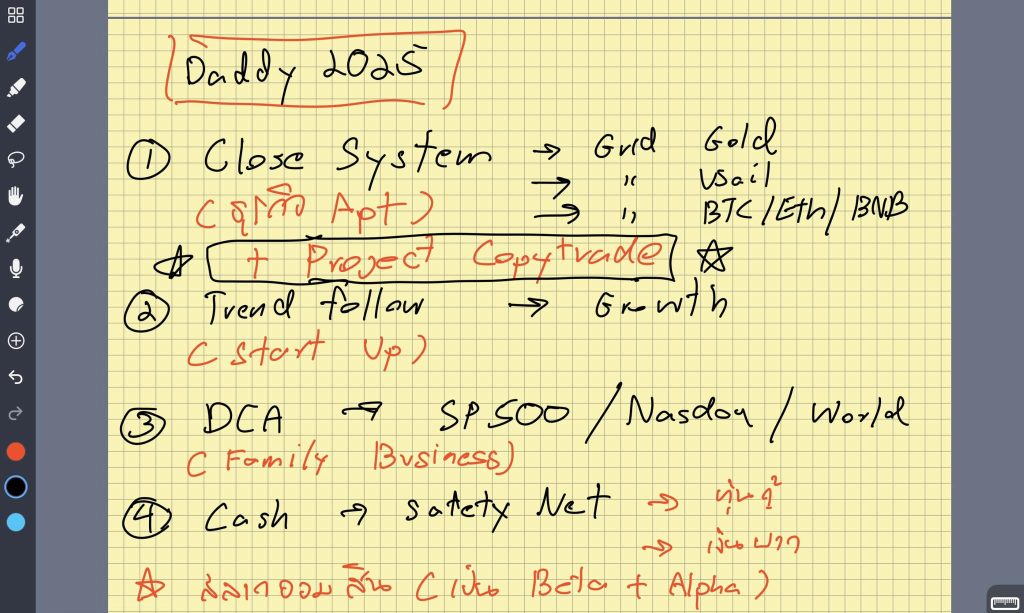 Daddy 2025
① Close System → Grid Gold
→ " USoil
(ธุรกิจ Apt) → " BTC/Eth/BNB
☆ + Project Copytrade ☆
② Trend follow → Growth
(start Up)
③ DCA → SP500 / Nasdaq / World
(Family Business)
④ Cash → Safety Net → หุ้นกู้
→ เงินฝาก
☆ สลากออมสิน (เป็น Beta + Alpha)